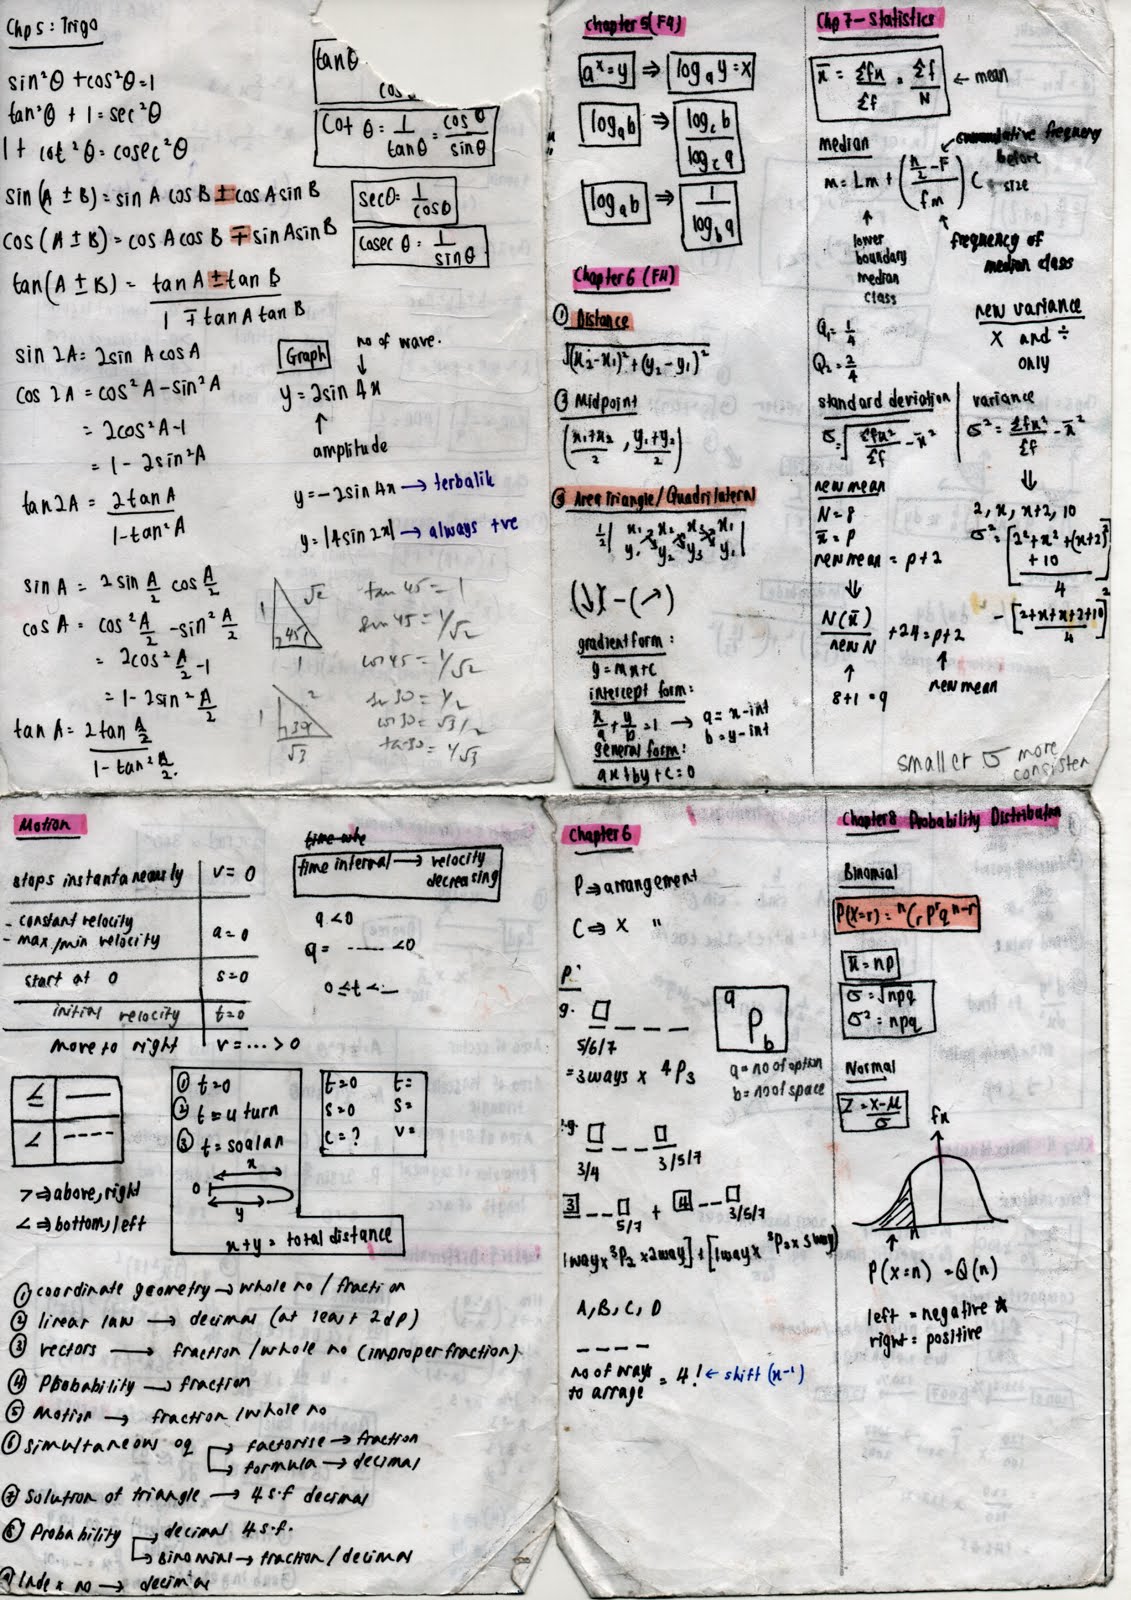 Chp 5 : Trigo
sin²θ + cos²θ = 1
tan²θ + 1 = sec²θ
1 + cot²θ = cosec²θ
sin (A ± B) = sin A cos B ± cos A sin B
cos (A ± B) = cos A cos B ∓ sin A sin B
tan (A ± B) = tan A ± tan B
1 ∓ tan A tan B
sin 2A = 2 sin A cos A
cos 2A = cos²A - sin²A
= 2cos²A - 1
= 1 - 2sin²A
tan 2A = 2 tan A
1 - tan²A
sin A = 2 sin A/2 cos A/2
cos A = cos² A/2 - sin² A/2
= 2cos² A/2 - 1
= 1 - 2sin² A/2
tan A = 2 tan A/2
1 - tan² A/2.
tan θ
cos
cot θ = 1/tan θ = cos θ/sin θ
sec θ = 1/cos θ
cosec θ = 1/sin θ
no of wave.
↓
Graph
y = 2 sin 4x
↑
amplitude
y = -2 sin 4x → terbalik
y = |4 sin 2x| → always +ve
1 √2 45 1
tan 45 = 1
sin 45 = 1/√2
cos 45 = 1/√2
1 2 30 √3
sin 30 = 1/2
cos 30 = √3/2
tan 30 = 1/√3
Chapter 5 (F4)
a^x = y ⇒ log_a y = x
log_a b ⇒ log_c b / log_c a
log_a b ⇒ 1 / log_b a
Chapter 6 (F4)
① Distance
√(x₂-x₁)² + (y₂-y₁)²
② Midpoint
(x₁+x₂/2 , y₁+y₂/2)
③ Area Triangle/Quadrilateral
1/2 | x₁ x₂ x₃ x₁
y₁ y₂ y₃ y₁ |
(↘) - (↗)
gradient form :
y = mx+c
intercept form :
x/a + y/b = 1 → a = x-int
b = y-int
general form :
ax + by + c = 0
Chp 7 - Statistics
x̄ = Σfx/Σf = Σf/N ← mean
median
cummulative frequency
before
m = Lm + (n/2 - F / fm) C
size
↑
lower
boundary
median
class
frequency of
median class
Q₁ = 1/4
Q₂ = 2/4
new variance
X and ÷
only
standard deviation
σ = √Σfx²/Σf - x̄²
variance
σ² = Σfx²/Σf - x̄²
⇓
new mean
N = 8
x̄ = p
new mean = p + 2
↓
N(x̄)/new N + 24 = p + 2
↑
8+1 = 9
↑
new mean
2, x, x+2, 10
σ² = [2² + x² + (x+2)² + 10 / 4]
- [2+x+x+2+10 / 4]²
smaller σ more
consisten
Motion
stops instantaneously v = 0
- constant velocity
- max/min velocity a = 0
start at 0 s = 0
initial velocity t = 0
move to right v = ... > 0
time interval → velocity
decreasing
a < 0
a = ---- < 0
0 ≤ t < --
≤ ——
< ----
> ⇒ above, right
< ⇒ bottom, left
① t = 0
② t = u turn
③ t = soalan
x
0
y
x + y = total distance
t = 0 t =
s = 0 s =
c = ? v =
① coordinate geometry → whole no / fraction
② linear law → decimal (at least 2 dp)
③ vectors → fraction / whole no (improper fraction).
④ Probability → fraction
⑤ Motion → fraction / whole no
⑥ Simultaneous eq → factorise → fraction
→ formula → decimal
⑦ Solution of triangle → 4 s.f decimal
⑧ Probability → decimal 4 s.f.
→ Binomial → fraction / decimal
⑨ Index no → decimal
Chapter 6
P ⇒ arrangement
C ⇒ X "
P
5/6/7
= 3 ways × ⁴P₃
ᵃP_b
a = no of option
b = no of space
3/4 3/5/7
3 _ _ 5/7 + 4 _ _ 3/5/7
[1 way × ³P₂ × 2 way] + [1 way × ³P₂ × 3 way]
A, B, C, D
_ _ _ _
no of ways
to arrage = 4! ← shift (x⁻¹)
Chapter 8 Probability Distributn
Binomial
P(X = r) = ⁿCr pʳ qⁿ⁻ʳ
x̄ = np
σ = √npq
σ² = npq
Normal
Z = X - μ / σ
fx
n
P(X = n) = Q(n)
left = negative ★
right = positive